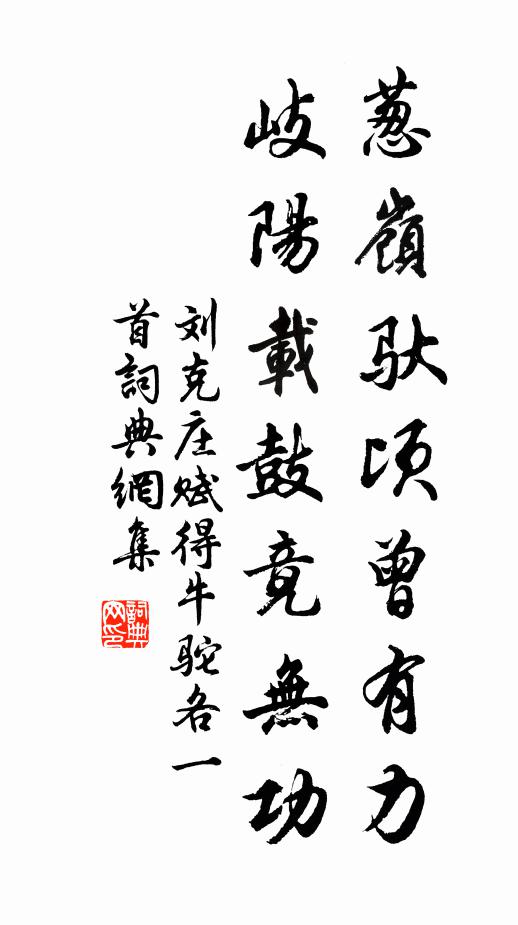 葱嶺馱頃曾有力
岐陽載鼓竟無功
刘克庄赋得牛驼各一
首詞典網集
詞典網印